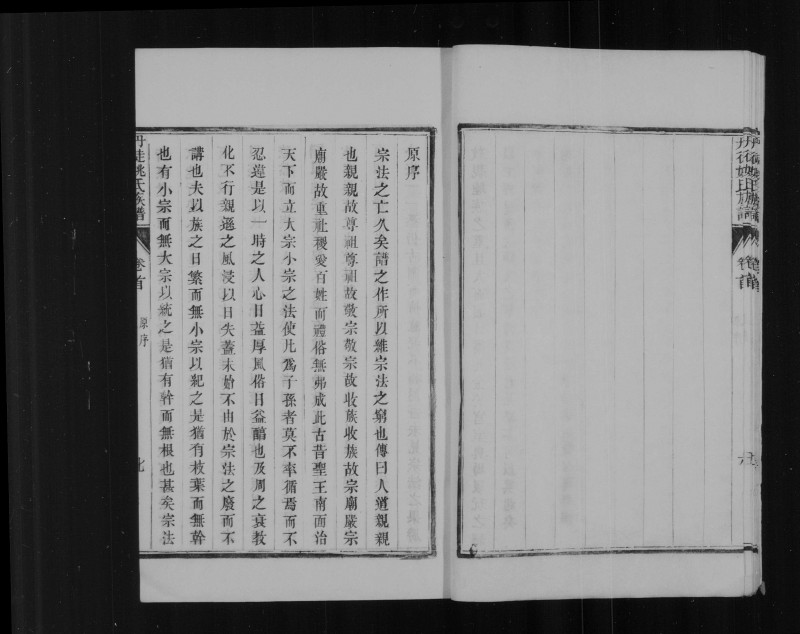 原序
宗法之亡久矣譜之作所以維宗法之窮也傳曰人道親親
也親親故尊祖尊祖故敬宗敬宗故收族收族故宗廟嚴宗
廟嚴故重社稷愛百姓而禮俗無弗成此古昔聖王南面治
天下而立大宗小宗之法使凡為子孫者莫不率循焉而不
忍違是以一時之人心日益厚風俗日益醇也及周之衰教
化不行親遜之風浸以日失蓋未始不由於宗法之廢而不
講也夫以族之日繁而無小宗以紀之是猶有枝葉而無幹
也有小宗而無大宗以統之是猶有幹而無根也甚矣宗法
丹徒姚氏族譜
卷首
原序